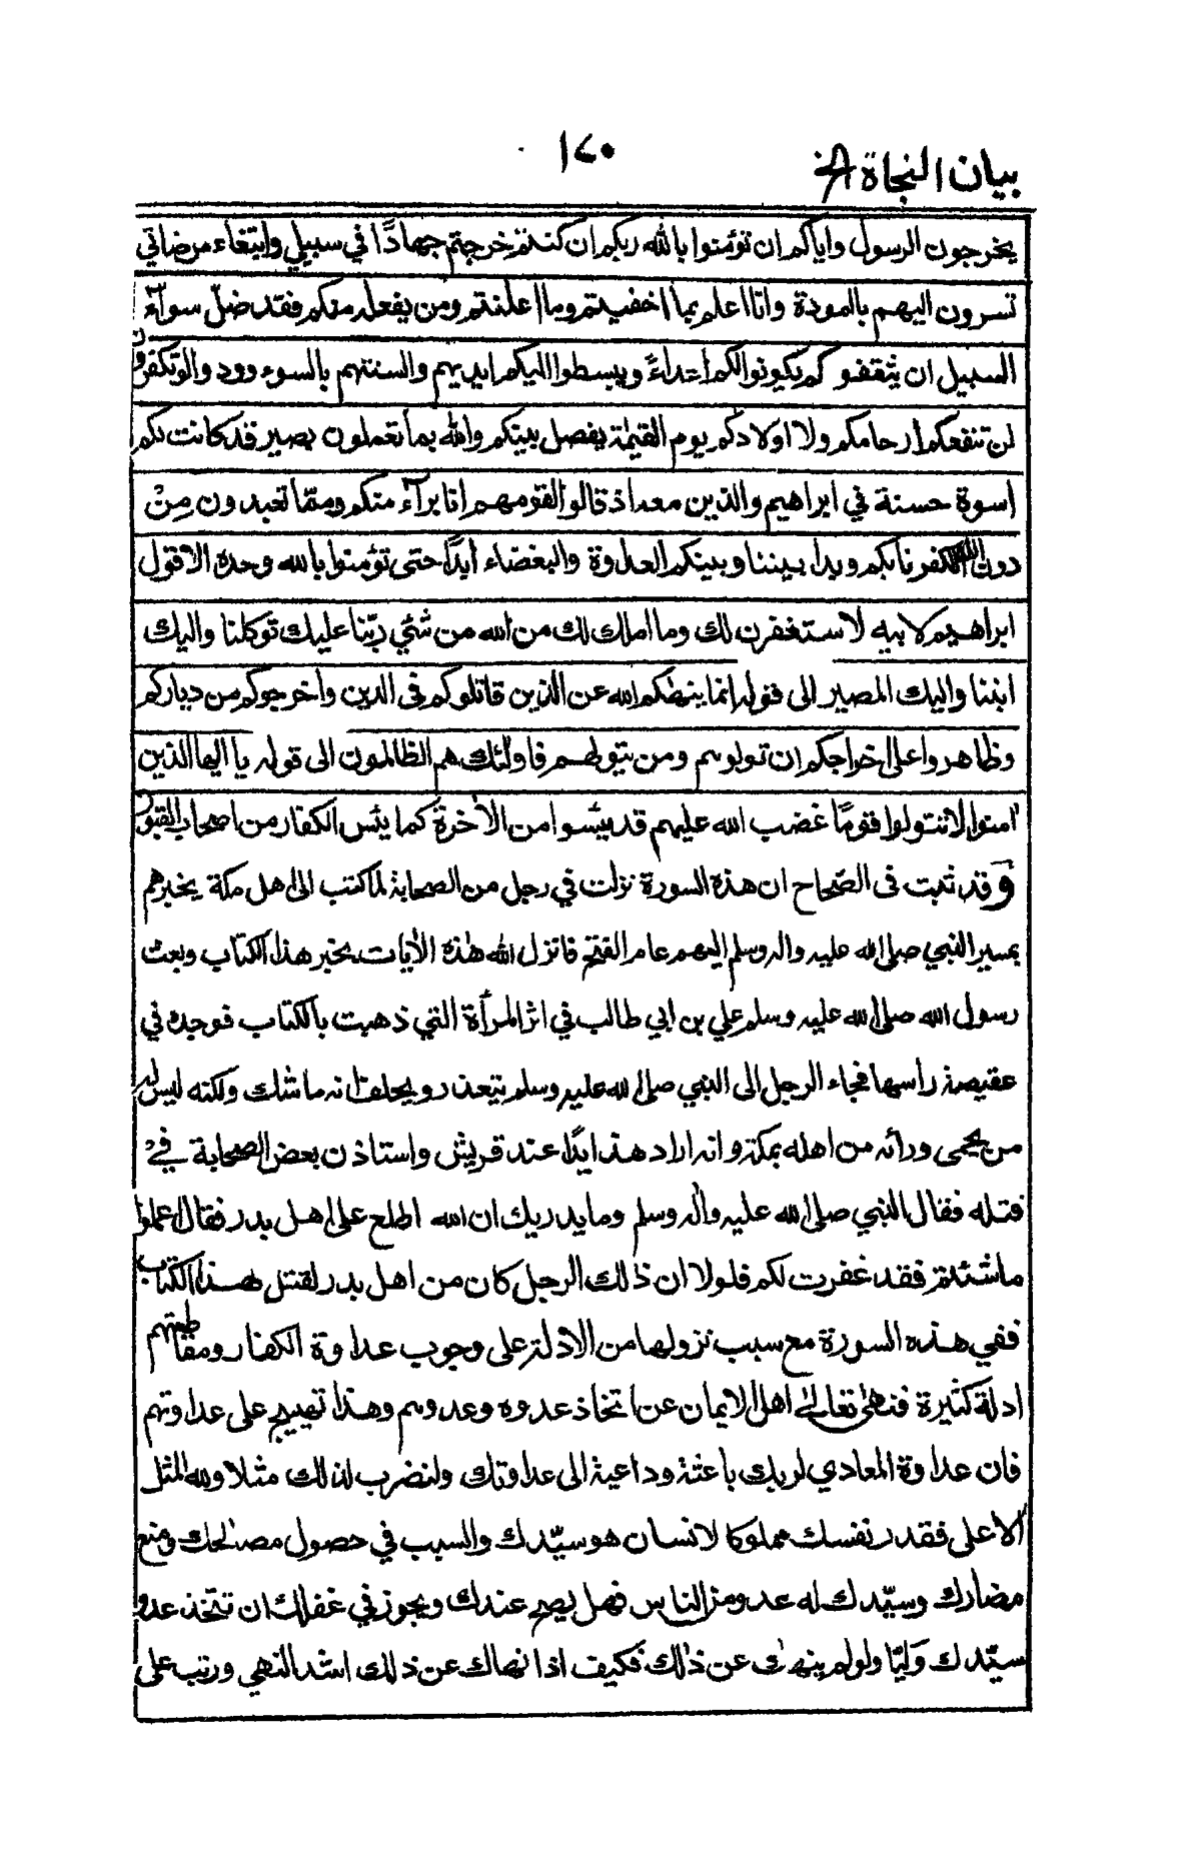 بيان النجاة الخ
١٧٠
يخرجون الرسول واياكم ان تؤمنوا بالله ربكم ان كنتم خرجتم جهادًا في سبيلي وابتغاء مرضاتي
تسرون اليهم بالمودة وانا اعلم بما اخفيتم وما اعلنتم ومن يفعله منكم فقد ضلّ سوآء
السبيل ان يثقفوكم يكونوا لكم اعداءً ويبسطوا اليكم ايديهم والسنتهم بالسوء وودوا لو تكفرون
لن تنفعكم ارحامكم ولا اولادكم يوم القيمة يفصل بينكم والله بما تعملون بصير قد كانت لكم
اسوة حسنة في ابراهيم والذين معه اذ قالوا لقومهم انا برآء منكم وممّا تعبدون مِنْ
دون الله كفرنا بكم وبدا بيننا وبينكم العداوة والبغضاء ابدًا حتى تؤمنوا بالله وحده الا قول
ابراهيم لابيه لاستغفرن لك وما املك لك من الله من شئي ربّنا عليك توكلنا واليك
انبنا واليك المصير الى قوله انما ينهٰكم الله عن الذين قاتلوكم في الدين واخرجوكم من دياركم
وظاهروا على اخراجكم ان تولوهم ومن يتولهم فاولئك هم الظالمون الى قوله يا ايها الذين
امنوا لا تتولوا قومًا غضب الله عليهم قد يئسوا من الاخرة كما يئس الكفار من اصحاب القبور
وقد ثبت فى الصّحاح ان هذه السورة نزلت في رجل من الصحابة لما كتب الى اهل مكة يخبرهم
بمسير النبي صلى الله عليه واله وسلم اليهم عام الفتح فانزل الله هٰذه الاٰيات يخبر هذا الكتاب وبعث
رسول الله صلى الله عليه وسلم علي بن ابي طالب في اثر المرأة التي ذهبت بالكتاب فوجده في
عقيصة راسها فجاء الرجل الى النبي صلى الله عليه وسلم يتعذر ويحلف انه ما شك ولكنه ليس له
من يحمى ورائه من اهله بمكة وانه اراد هذا يدًا عند قريش واستاذن بعض الصحابة في
قتله فقال النبي صلى الله عليه واله وسلم وما يدريك ان الله اطلع على اهل بدر فقال اعملوا
ماشئتم فقد غفرت لكم فلولا ان ذٰلك الرجل كان من اهل بدر لقتل بهذا الكتاب
ففي هذه السورة مع سبب نزولها من الادلة على وجوب عداوة الكفار ومقاطعتهم
ادلة كثيرة فنهىٰ تعالىٰ اهل الايمان عن اتخاذ عدوه وعدوهم وهذا تهييج على عداوتهم
فان عداوة المعادي لربك باعثة وداعية الى عداوتك ولنضرب لذلك مثلا ولله المثل
الاعلى فقدر نفسك مملوكا لانسان هو سيّدك والسبب في حصول مصالحك ومنع
مضارك وسيّدك له عدو من الناس فهل يصح عندك ويجوز في عقلك ان تتّخذ عدو
سيّدك وَليّا ولو لم ينهك عن ذٰلك فكيف اذا نهاك عن ذلك اشد النهي ورتب على